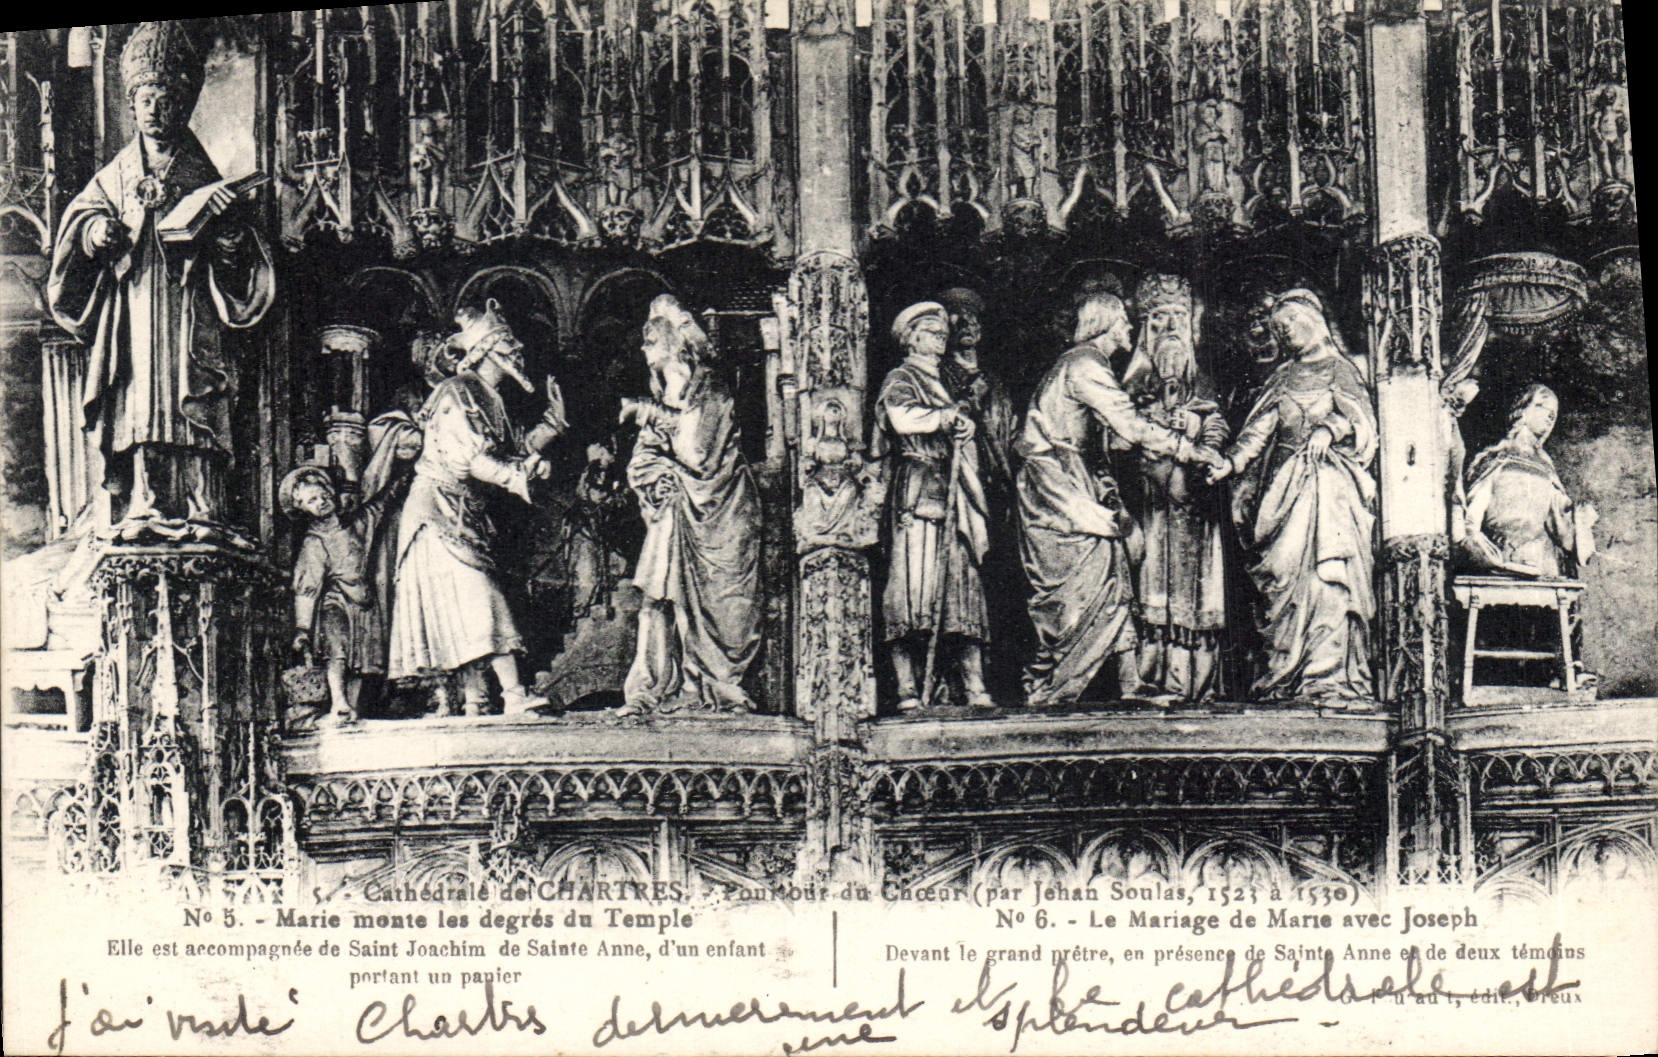 5. - Cathédrale de CHARTRES. - Pourtour du Chœur (par Jehan Soulas, 1523 à 1530)
Nº 5. - Marie monte les degrés du Temple
Elle est accompagnée de Saint Joachim de Sainte Anne, d'un enfant
portant un panier
Nº 6. - Le Mariage de Marie avec Joseph
Devant le grand prêtre, en présence de Sainte Anne et de deux témoins
édit., Dreux
J'ai visité Chartres dernièrement et la cathédrale est
une splendeur -